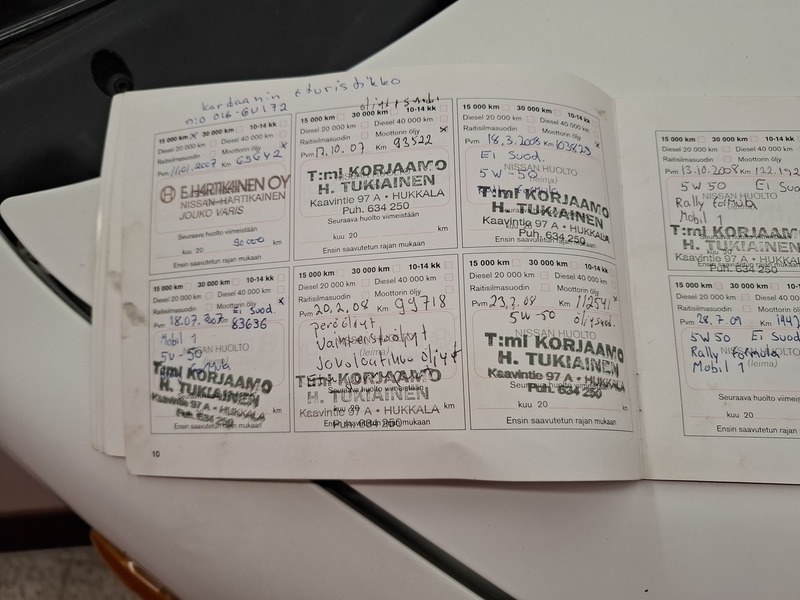 kardaanin eturistikko
n:o 016-60172
15 000 km x 30 000 km 10-14 kk
Diesel 20 000 km Diesel 40 000 km
Raitisilmasuodin Moottorin öljy
Pvm 11.01.2007 Km 69642 x
E.HARTIKAINEN OY
NISSAN-HARTIKAINEN
JOUKO VARIS
Seuraava huolto viimeistään
kuu 20 90000 km
Ensin saavutetun rajan mukaan
15 000 km 30 000 km 10-14 kk
Diesel 20 000 km Diesel 40 000 km
Raitisilmasuodin Moottorin öljy
Pvm 18.07.2007 Km 83636 x
Ei Suod.
Mobil 1
5W-50
NISSAN HUOLTO
T:mi KORJAAMO
H. TUKIAINEN
Kaavintie 97 A • HUKKALA
Puh. 634 250
km
Ensin saavutetun rajan mukaan
15 000 km 30 000 km 10-14 kk
Diesel 20 000 km Diesel 40 000 km
Raitisilmasuodin Moottorin öljy x
Pvm 17.10.07 Km 93522
NISSAN HUOLTO
T:mi KORJAAMO
H. TUKIAINEN
Kaavintie 97 A • HUKKALA
Puh. 634 250
Seuraava huolto viimeistään
kuu 20 km
Ensin saavutetun rajan mukaan
15 000 km 30 000 km 10-14 kk
Diesel 20 000 km Diesel 40 000 km
Raitisilmasuodin Moottorin öljy
Pvm 20.2.08 Km 99718
peräöljyt
(leima)
T:mi KORJAAMO
H. TUKIAINEN
Seuraava huolto viimeistään
Kaavintie 97 A • HUKKALA
kuu 20 km
Puh. 634 250
Ensin saavutetun rajan mukaan
15 000 km 30 000 km 10-14 kk
Diesel 20 000 km Diesel 40 000 km
Raitisilmasuodin Moottorin öljy x
Pvm 18.3.2008 Km 103829
Ei Suod.
NISSAN HUOLTO
5W-50
(leima)
T:mi KORJAAMO
H. TUKIAINEN
Kaavintie 97 A • HUKKALA
Puh. 634 250
kuu 20 km
Ensin saavutetun rajan mukaan
15 000 km 30 000 km 10-14 kk
Diesel 20 000 km Diesel 40 000 km
Raitisilmasuodin Moottorin öljy
Pvm 23.7.08 Km 112541 x
5W-50 öljysuod.
NISSAN HUOLTO
T:mi KORJAAMO
H. TUKIAINEN
Kaavintie 97 A • HUKKALA
Seuraava huolto viimeistään
Puh. 634 250
kuu 20 km
Ensin saavutetun rajan mukaan
10
15 000 km
Diesel 20 000 km
Raitisilmasuodin
Pvm 13.10.2008 Km 122.192
5W50 Ei Suod
NISSAN HUOLTO
Rally formula
Mobil 1
T:mi KORJAAMO
H. TUKIAINEN
Puh. 634 250
15 000 km
Diesel 20 000 km
Raitisilmasuodin
Pvm 28.7.09 Km
5W50 Ei Suod
NISSAN HUOLTO
Rally formula
Mobil 1 (leima)
Seuraava huolto
kuu 20
Ensin saavutetun rajan